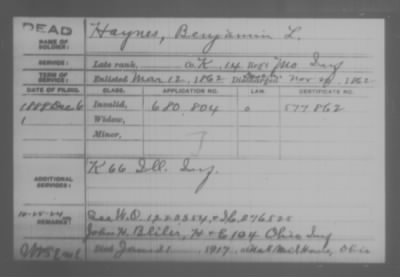 DEAD
NAME OF SOLDIER: Haynes, Benjamin L.
SERVICE: Late rank, Co. K, 14 Reg't Mo Inf
TERM OF SERVICE: Enlisted Mar 12, 1862 Discharged Nov 20, 1862
DATE OF FILING. CLASS. APPLICATION NO. LAW. CERTIFICATE NO.
1888 Dec 6 Invalid, 680,804 577862
Widow,
Minor,
ADDITIONAL SERVICES: K 66 Ill. Inf.
10-25-24
REMARKS: See W.O. 1220354
John H. Bliler, H + E 104 Ohio Inf
Died Jan 21 1917, at Ohio